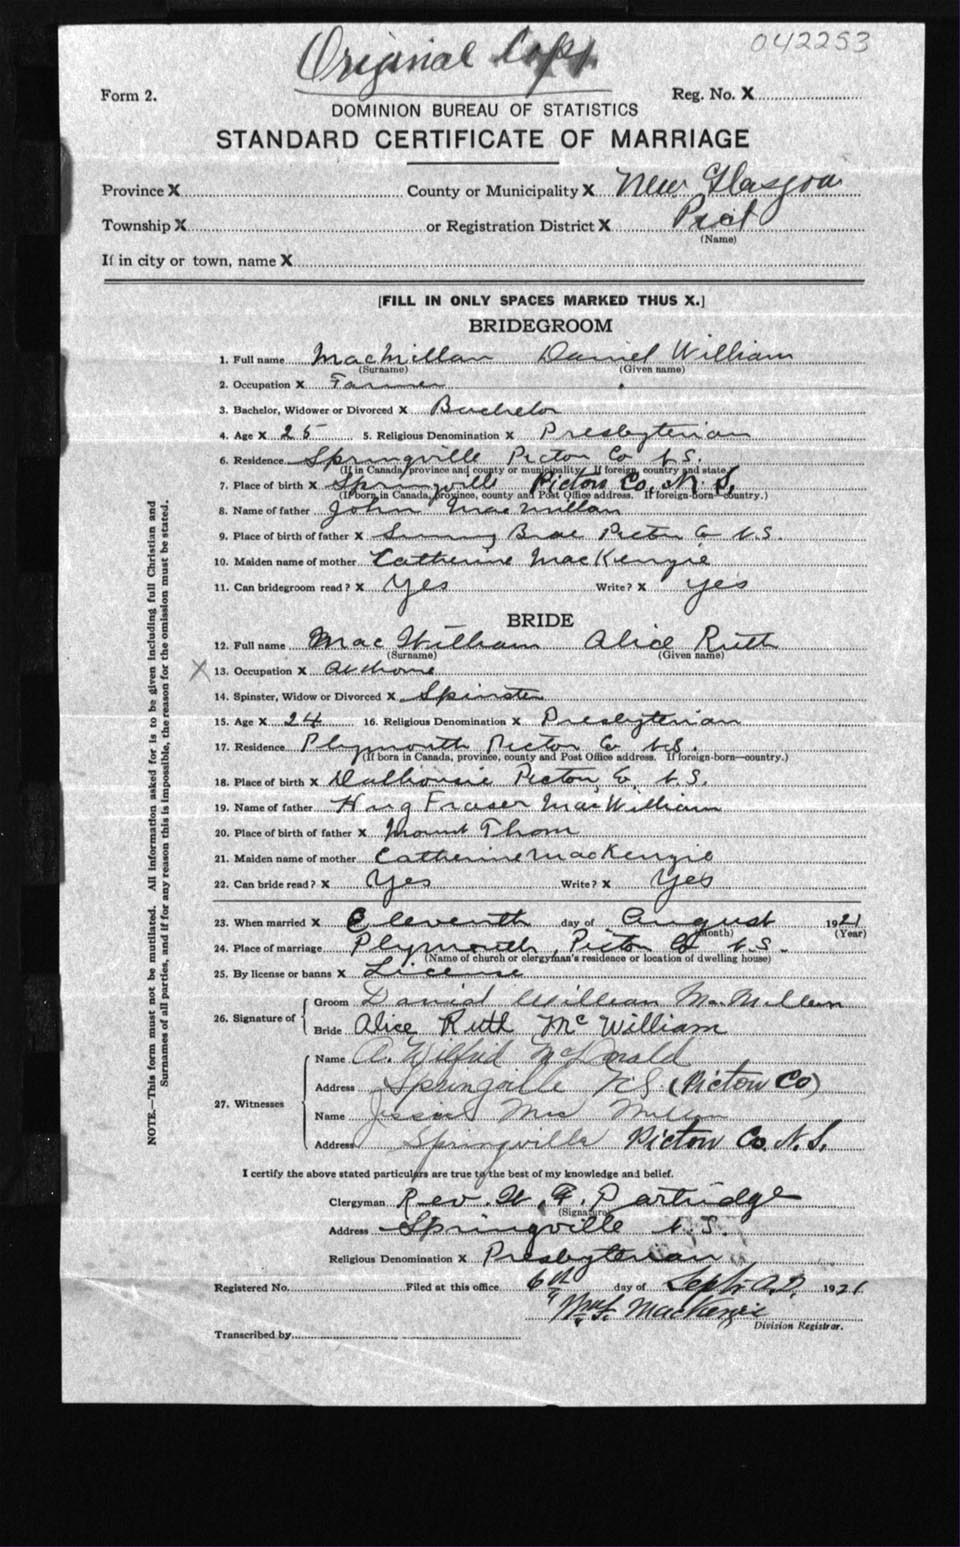 Original Copy
042253
Form 2.
Reg. No. X
DOMINION BUREAU OF STATISTICS
STANDARD CERTIFICATE OF MARRIAGE
Province X County or Municipality X New Glasgow
Township X or Registration District X Pict
(Name)
If in city or town, name X
[FILL IN ONLY SPACES MARKED THUS X.]
BRIDEGROOM
1. Full name MacMillan Daniel William
(Surname) (Given name)
2. Occupation X Farmer
3. Bachelor, Widower or Divorced X Bachelor
4. Age X 25 5. Religious Denomination X Presbyterian
6. Residence Springville Pictou Co N.S.
(If in Canada, province and county or municipality. If foreign, country and state)
7. Place of birth X Springville Pictou Co. N.S.
(If born in Canada, province, county and Post Office address. If foreign-born—country.)
8. Name of father John MacMillan
9. Place of birth of father X Sunny Brae Pictou Co N.S.
10. Maiden name of mother Catherine MacKenzie
11. Can bridegroom read? X Yes Write? X yes
BRIDE
12. Full name MacWilliam Alice Ruth
(Surname) (Given name)
X 13. Occupation X At home
14. Spinster, Widow or Divorced X Spinster
15. Age X 24 16. Religious Denomination X Presbyterian
17. Residence Plymouth Pictou Co N.S.
(If born in Canada, province, county and Post Office address. If foreign-born—country.)
18. Place of birth X Dalhousie Pictou Co, N.S.
19. Name of father Hug Fraser MacWilliam
20. Place of birth of father X Mount Thom
21. Maiden name of mother Catherine MacKenzie
22. Can bride read? X Yes Write? X Yes
23. When married X Eleventh day of August 1921
(Month) (Year)
24. Place of marriage Plymouth, Pictou Co N.S.
(Name of church or clergyman's residence or location of dwelling house)
25. By license or banns X License
26. Signature of
Groom Daniel William MacMillan
Bride Alice Ruth McWilliam
27. Witnesses
Name A. Wilfrid McDonald
Address Springville N.S (Pictou Co)
Name Jessie MacMillan
Address Springville Pictou Co. N.S.
I certify the above stated particulars are true to the best of my knowledge and belief.
Clergyman Rev. W. F. Partridge
(Signature)
Address Springville N.S.
Religious Denomination X Presbyterian
Registered No. Filed at this office 6th day of Sept. A.D. 1921
MacKenzie
Division Registrar.
Transcribed by
NOTE.—This form must not be mutilated. All information asked for is to be given including full Christian and
Surnames of all parties, and if for any reason this is impossible, the reason for the omission must be stated.